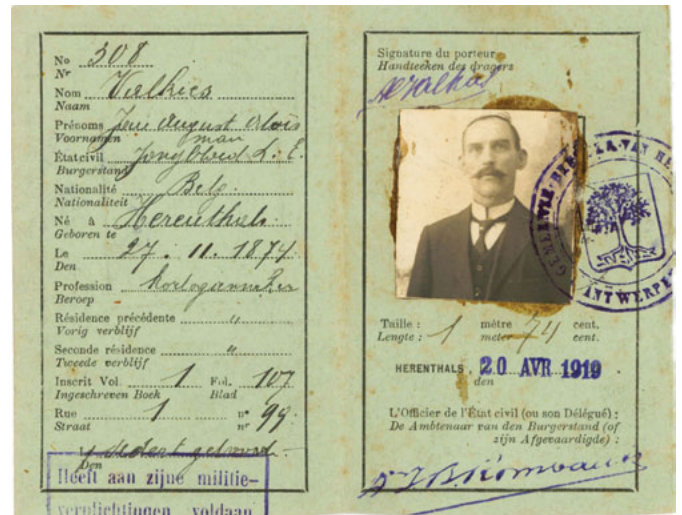 No 308
Nr
Nom
Naam
Prénoms Jan August Aloïs
Voornamen
man
État civil Jong
Burgerstand
Nationalité Belg.
Nationaliteit
Né à Herenthals.
Geboren te
Le 27. 11. 1874.
Den
Profession
Beroep
Résidence précédente "
Vorig verblijf
Seconde résidence "
Tweede verblijf
Inscrit Vol. 1 Fol. 107
Ingeschreven Boek Blad
Rue 1 n° 99
Straat nr
Den
Heeft aan zijne militie-
verplichtingen voldaan
Signature du porteur
Handteeken des dragers
GEMEENTE VAN
ANTWERPEN
Taille : 1 mètre 74 cent.
Lengte : meter cent.
HERENTHALS, 20 AVR 1919
den
L'Officier de l'État civil (ou son Délégué) :
De Ambtenaar van den Burgerstand (of
zijn Afgevaardigde) :